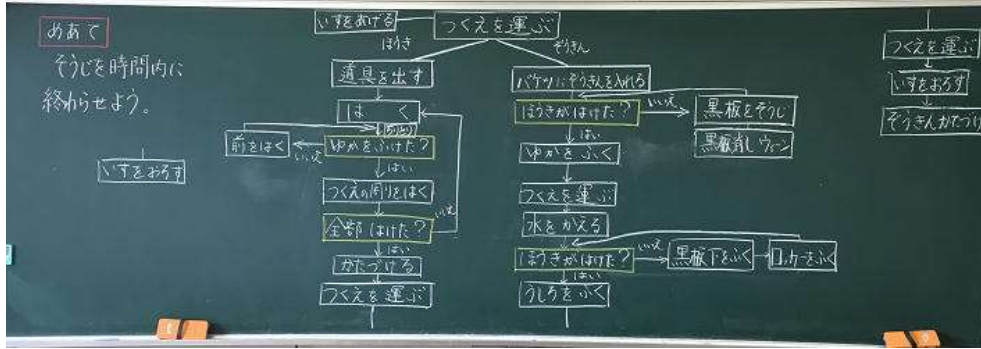 めあて
そうじを時間内に
終わらせよう。
いすをおろす
いすをあげる
つくえを運ぶ
ほうき
道具を出す
はく
ゆかをふけた?
いいえ
前をはく
はい
つくえの周りをはく
全部はけた?
いいえ
はい
かたづける
つくえを運ぶ
ぞうきん
バケツにぞうきんを入れる
ほうきがはけた?
いいえ
黒板をそうじ
黒板消しウィーン
はい
ゆかをふく
つくえを運ぶ
水をかえる
ほうきがはけた?
いいえ
黒板下をふく
ロッカーをふく
はい
うしろをふく
つくえを運ぶ
いすをおろす
ぞうきんかたづけ